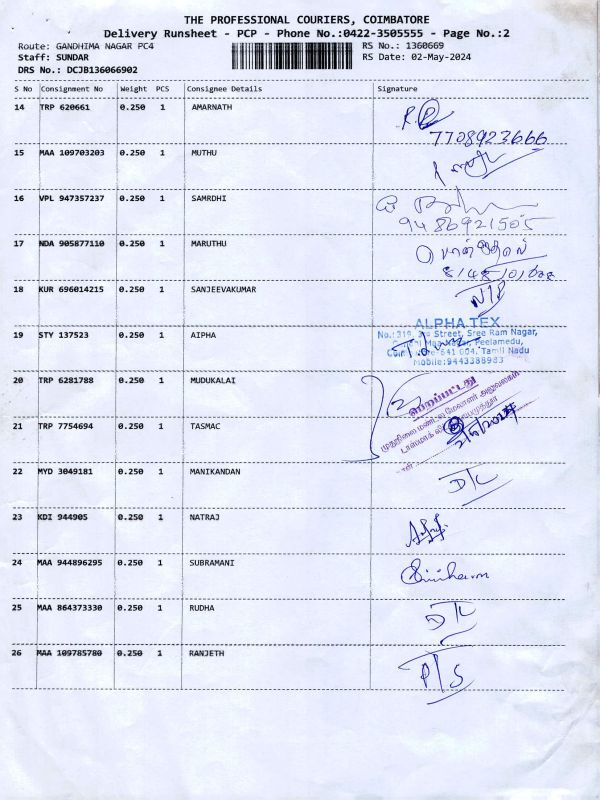 THE PROFESSIONAL COURIERS, COIMBATORE
Delivery Runsheet - PCP - Phone No.:0422-3505555 - Page No.:2
Route: GANDHIMA NAGAR PC4 RS No.: 1360669
Staff: SUNDAR RS Date: 02-May-2024
DRS No.: DCJB136066902
S No Consignment No Weight PCS Consignee Details Signature
14 TRP 620661 0.250 1 AMARNATH
7708923666
15 MAA 109703203 0.250 1 MUTHU
16 VPL 947357237 0.250 1 SAMRDHI
9486921505
17 NDA 905877110 0.250 1 MARUTHU
18 KUR 696014215 0.250 1 SANJEEVAKUMAR
ALPHA TEX
Street, Sree Ram Nagar,
19 STY 137523 0.250 1 AIPHA
Peelamedu,
641 004. Tamil Nadu
Mobile:9443388983
20 TRP 6281788 0.250 1 MUDUKALAI
பெறப்பட்டது
முதுநிலை மண்டல மேலாளர் அலுவலகம்
21 TRP 7754694 0.250 1 TASMAC
22 MYD 3049181 0.250 1 MANIKANDAN
23 KDI 944905 0.250 1 NATRAJ
24 MAA 944896295 0.250 1 SUBRAMANI
25 MAA 864373330 0.250 1 RUDHA
26 MAA 109785780 0.250 1 RANJETH
P/S